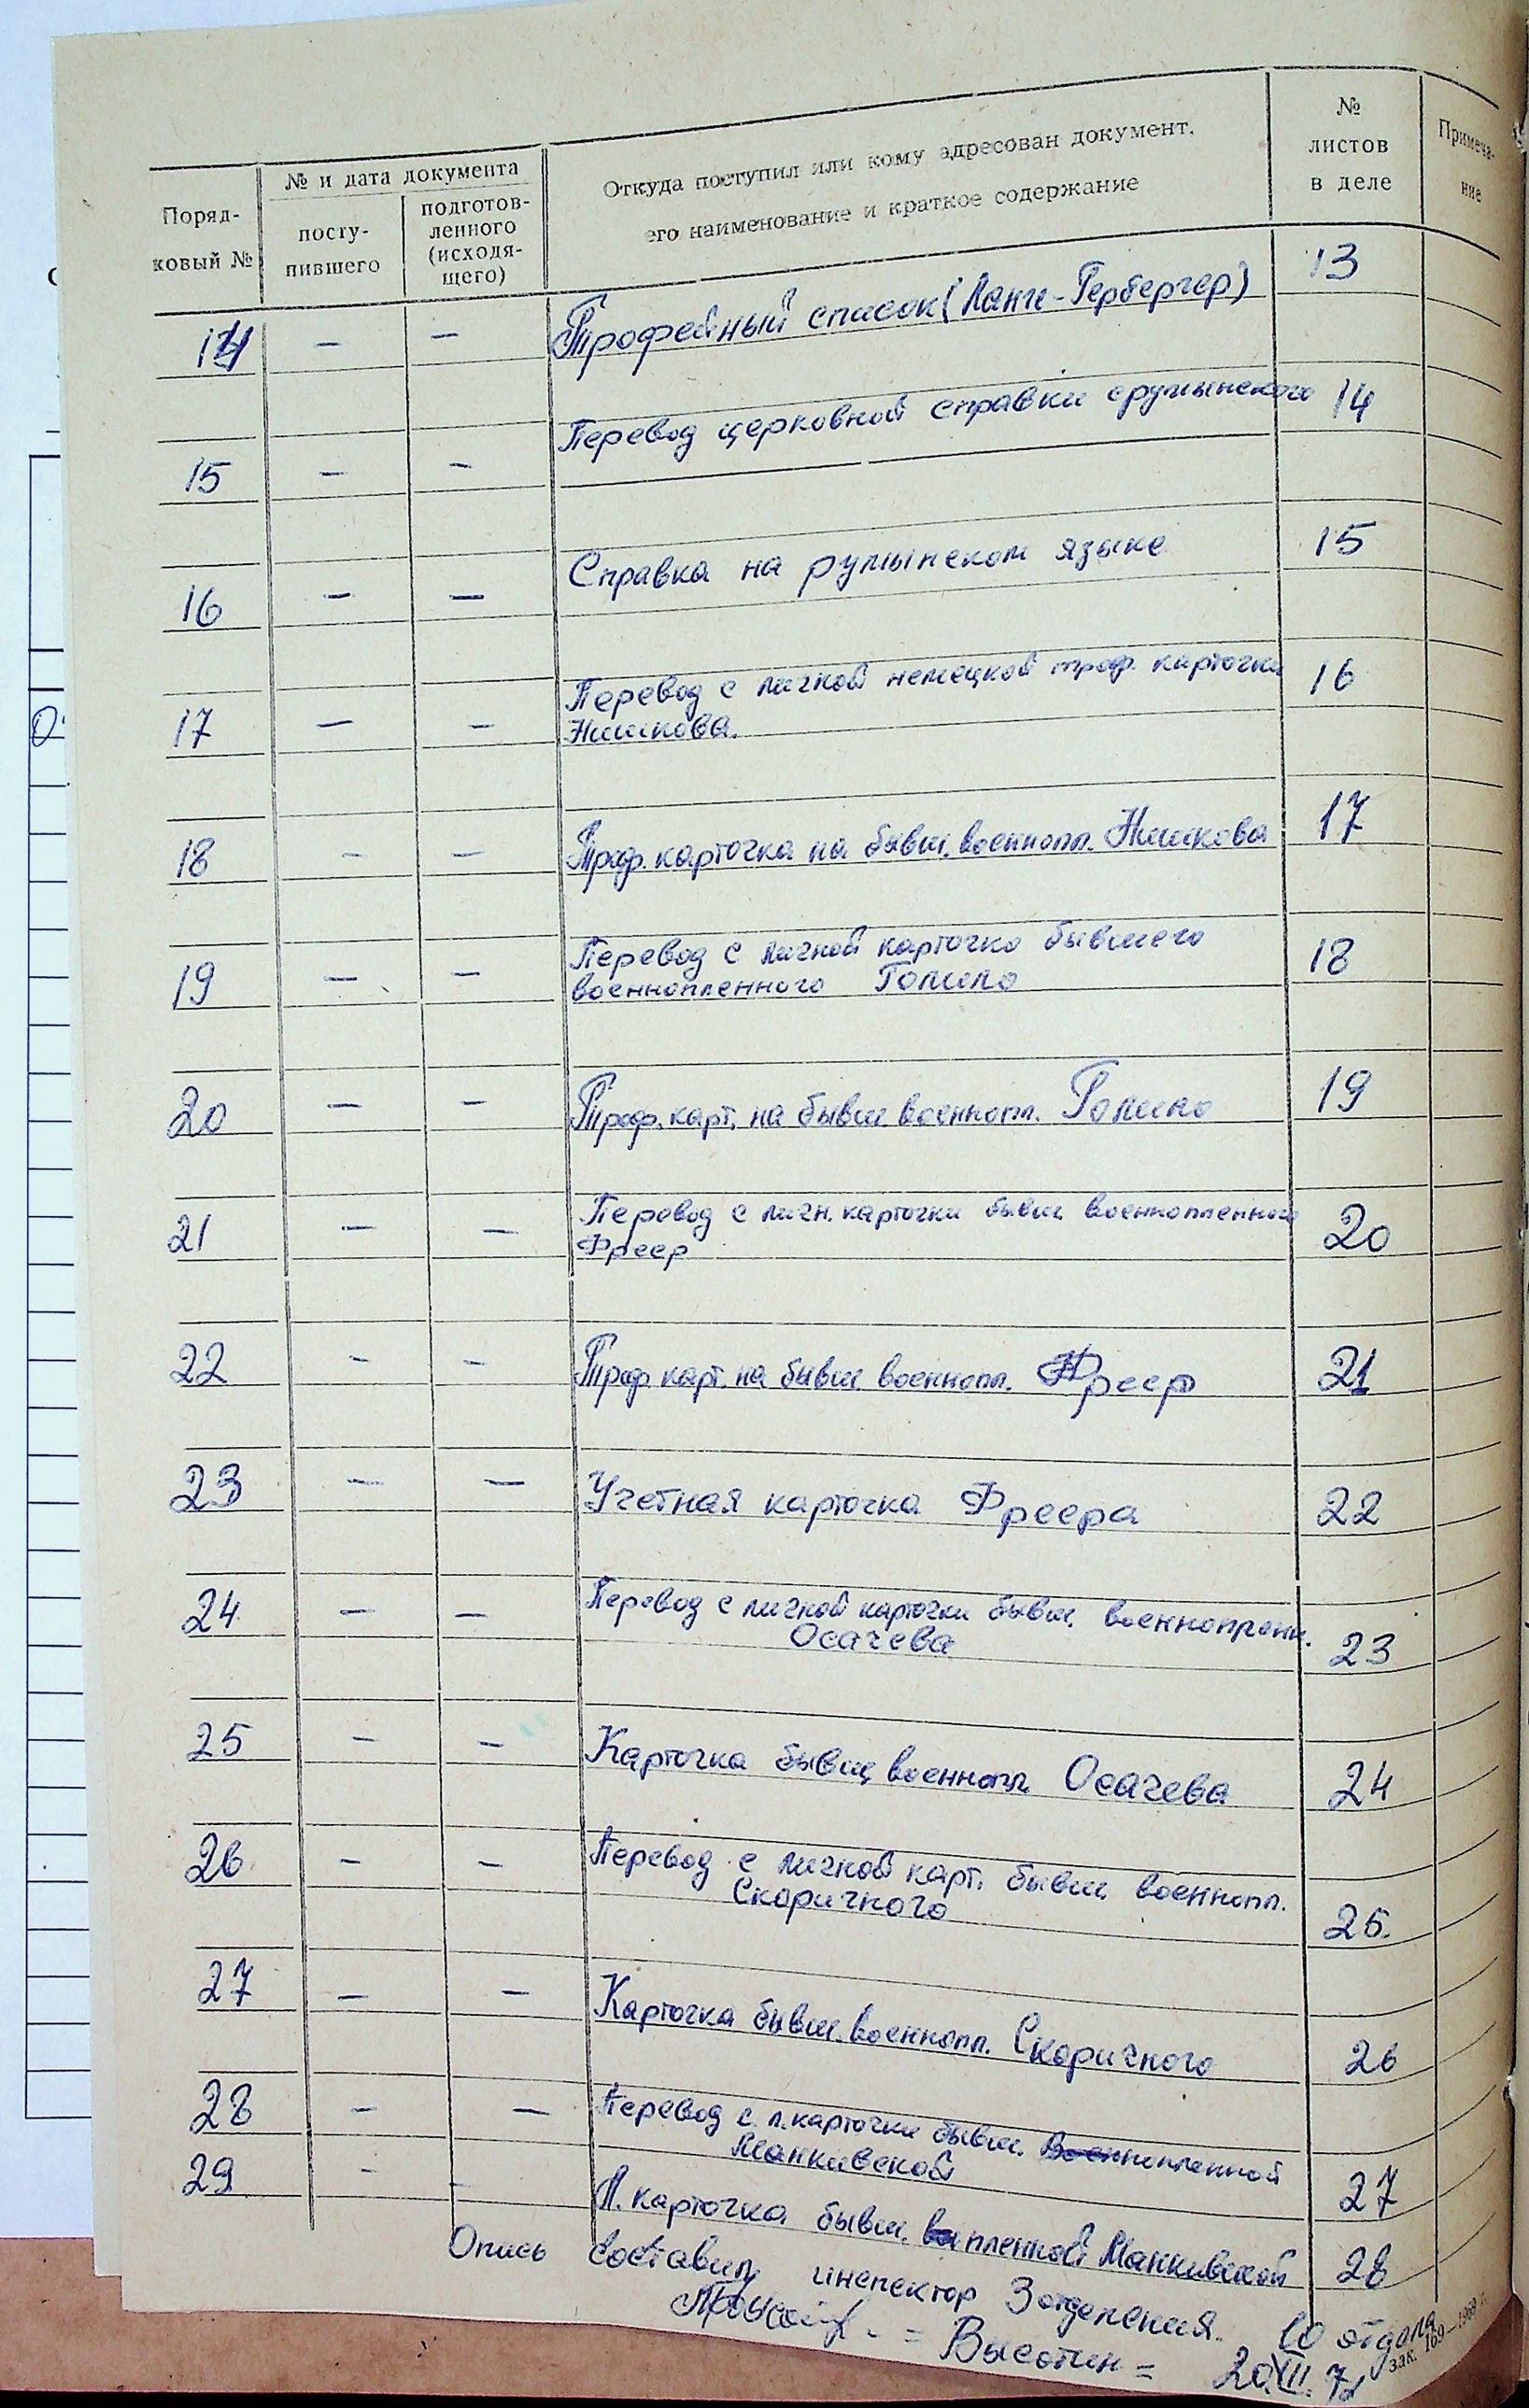 Поряд-
ковый №
№ и дата документа
посту-
пившего
подготов-
ленного
(исходя-
щего)
Откуда поступил или кому адресован документ,
его наименование и краткое содержание
№
листов
в деле
Примеча-
ние
14 – – Трофейный список (Ланге-Гербергер) 13
15 – – Перевод церковной справки с румынского 14
16 – – Справка на румынском языке 15
17 – – Перевод с личной немецкой троф. карточки 16
Нишкова.
18 – – Троф. карточка на бывш. военнопл. Нишкова 17
19 – – Перевод с личной карточко бывшего 18
военнопленного Голило
20 – – Троф. карт. на бывш военнопл. 19
21 – – Перевод с личн. карточки бывш военнопленного 20
Фреер
22 – – Троф карт. на бывш военнопл. Фреер 21
23 – – Учетная карточка Фреера 22
24 – – Перевод с личной карточки бывш.
Осачева 23
25 – – Карточка бывш военнопл Осачева 24
26 – – Перевод с личной карт. бывш военнопл.
Скоричного 25.
27 – – Карточка бывш. военнопл. Скоричного 26
28 – – Перевод с л. карточки бывш. пленной
Манкивской 27
29 – – Л. карточка бывш. пленной Манкивской 28
Опись составил инспектор 3 отделения 10 отдела
= Высотин = 20.XII.72
зак. 169—1969 г.